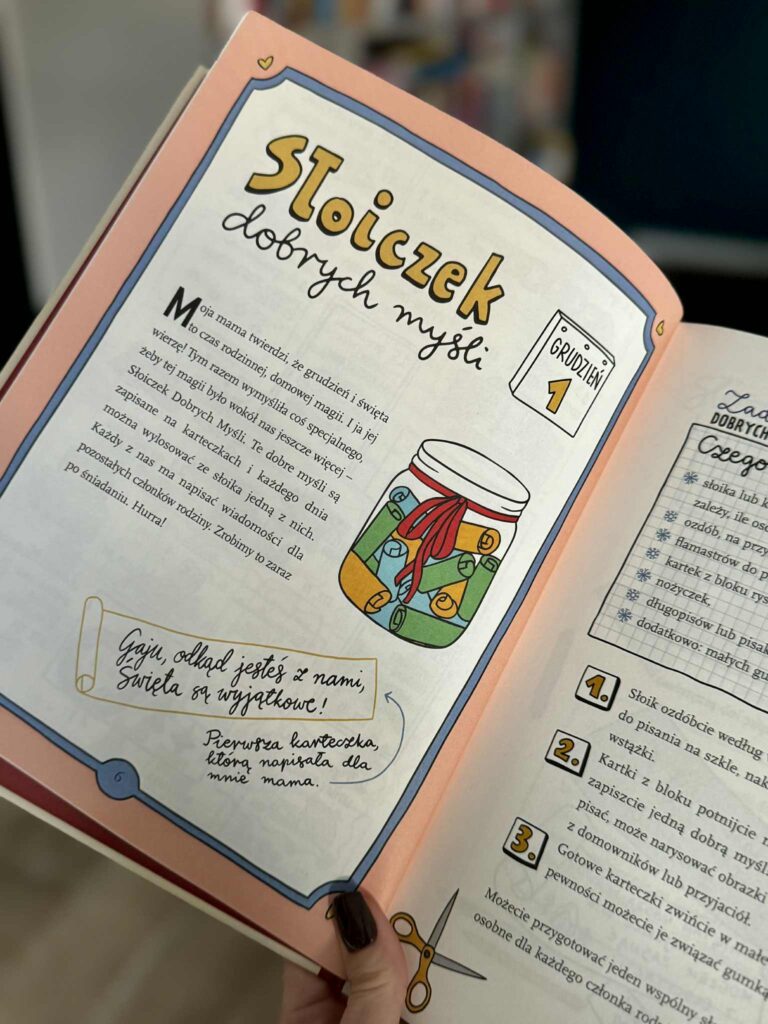 Słoiczek
dobrych myśli
GRUDZIEŃ
1
Moja mama twierdzi, że grudzień i święta
to czas rodzinnej, domowej magii. I ja jej
wierzę! Tym razem wymyśliła coś specjalnego,
żeby tej magii było wokół nas jeszcze więcej –
Słoiczek Dobrych Myśli. Te dobre myśli są
zapisane na karteczkach i każdego dnia
można wylosować ze słoika jedną z nich.
Każdy z nas ma napisać wiadomości dla
pozostałych członków rodziny. Zrobimy to zaraz
po śniadaniu. Hurra!
Gaju, odkąd jesteś z nami,
Święta są wyjątkowe!
Pierwsza karteczka,
którą napisała dla
mnie mama.
6
DOBRYCH
Czego
słoika lub
zależy, ile
ozdób, na
flamastrów do
kartek z bloku
nożyczek,
długopisów lub
dodatkowo: małych
1. Słoik ozdóbcie według
do pisania na szkle,
wstążki.
2. Kartki z bloku potnijcie
zapiszcie jedną dobrą
pisać, może narysować obrazki
z domowników lub przyjaciół.
3. Gotowe karteczki zwińcie w
pewności możecie je związać
Możecie przygotować jeden wspólny
osobne dla każdego członka